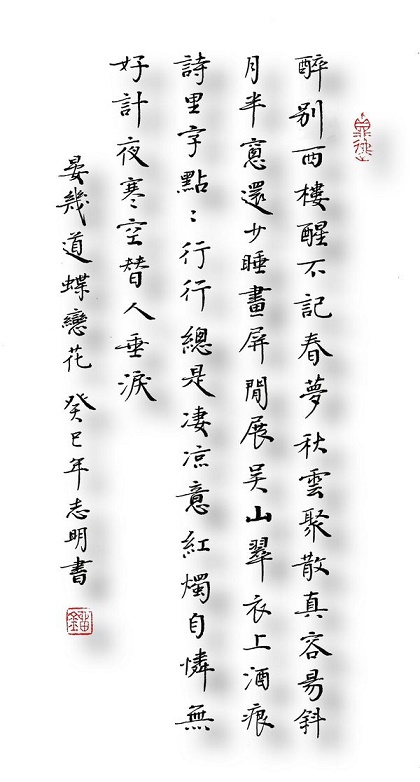 醉别西樓醒不記春夢秋雲聚散真容易斜
月半窓還少睡畫屏閒展吴山翠衣上酒痕
詩里字點：行行總是凄凉意紅燭自憐無
好計夜寒空替人垂淚
晏幾道蝶戀花 癸巳年志明書